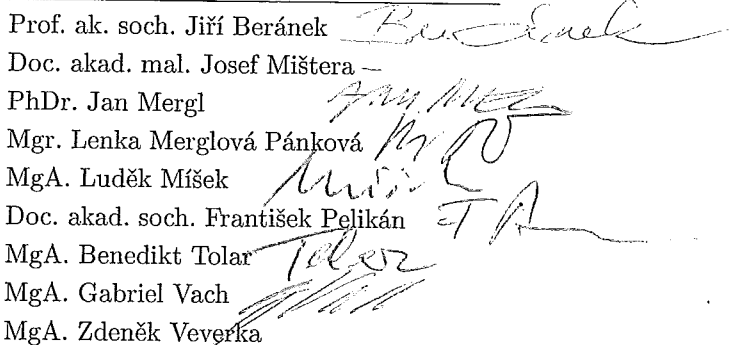 Prof. ak. soch. Jiří Beránek
Doc. akad. mal. Josef Mištera –
PhDr. Jan Mergl
Mgr. Lenka Merglová Pánková
MgA. Luděk Míšek
Doc. akad. soch. František Pelikán
MgA. Benedikt Tolar Tolar
MgA. Gabriel Vach
MgA. Zdeněk Veverka